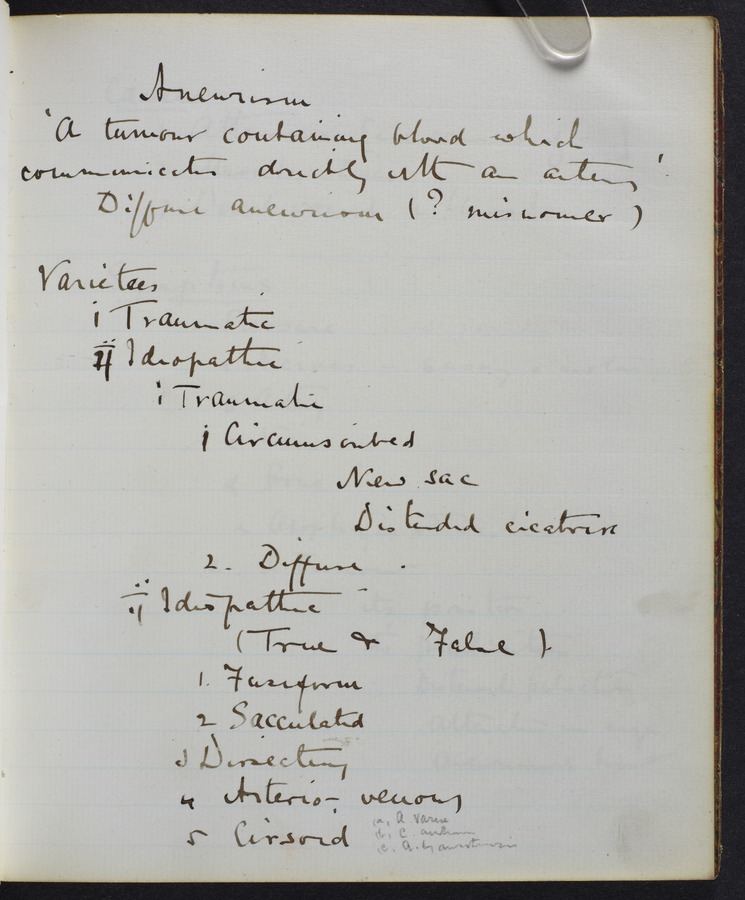 Aneurism
'A tumour containing blood which
communicates directly with an artery'.
Diffuse aneurism (? misnomer)
Varieties
i Traumatic
ii Idiopathic
i Traumatic
1 Circumscribed
New sac
Distended cicatrix
2. Diffuse .
ii Idiopathic
(True & False)
1. Fusiform
2 Sacculated
3 Dissecting
4 Arterio-venous
5 Cirsoid
(a. A. Varix
(b. C.
(c. A. by anastomosis